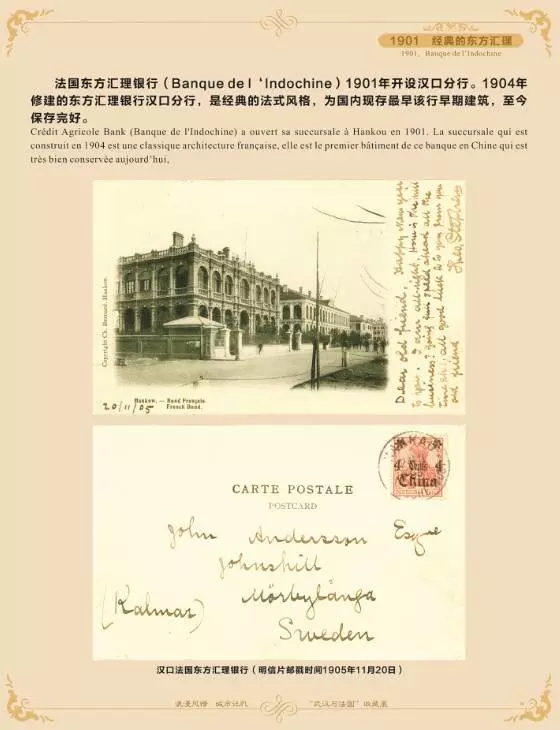 1901 经典的东方汇理
1901, Banque de l'Indochine
法国东方汇理银行（Banque de l‘Indochine）1901年开设汉口分行。1904年
修建的东方汇理银行汉口分行，是经典的法式风格，为国内现存最早该行早期建筑，至今
保存完好。
Crédit Agricole Bank (Banque de l'Indochine) a ouvert sa succursale à Hankou en 1901. La succursale qui est
construit en 1904 est une classique architecture française, elle est le premier bâtiment de ce banque en Chine qui est
très bien conservée aujourd'hui,
Copyright Ch. Bernard, Hankow.
Hankow. — Bund Français.
French Bund.
20/11/05
Dear old friend, Happy New year
to you. I am all right. How is the
business?
all good luck to you from you
old friend
CARTE POSTALE
POSTCARD
4 Cents 4
China
John Andersson Esqre
Johnshill
Mörbylånga
(Kalmar)
Sweden
汉口法国东方汇理银行（明信片邮戳时间1905年11月20日）
武汉与法国”收藏展